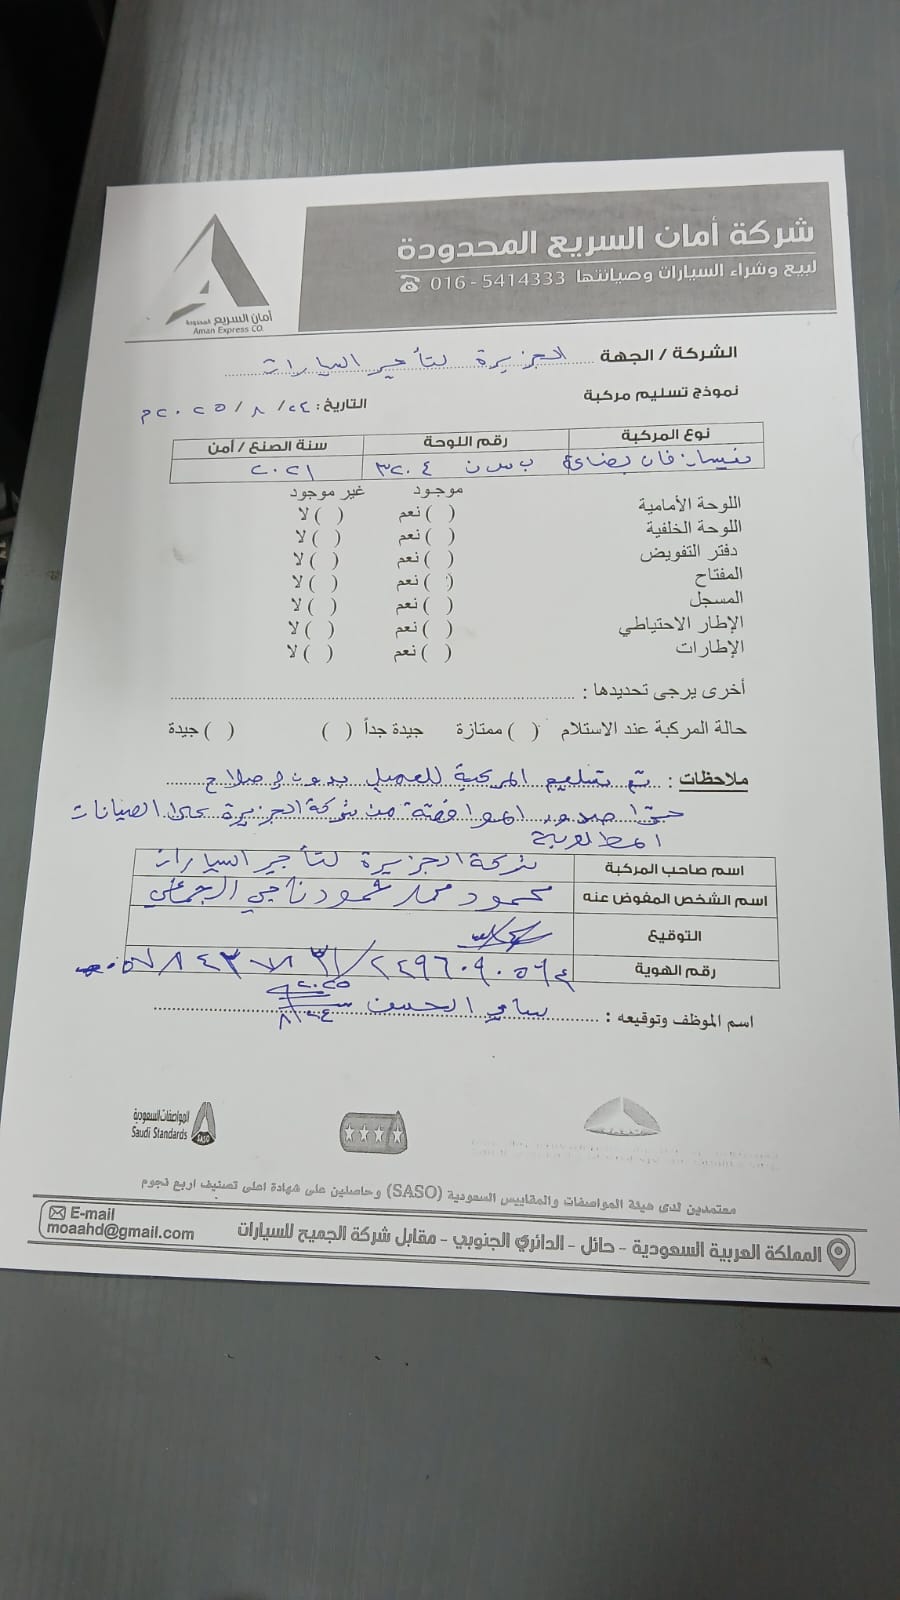 شركة أمان السريع المحدودة
لبيع وشراء السيارات وصيانتها 016 - 5414333
أمان السريع المحدودة
Aman Express CO.
الشركة / الجهة الجزيرة لتأجير السيارات
نموذج تسليم مركبة
التاريخ: ٢٤ / ٨ / ٢٠٢٥م
نوع المركبة رقم اللوحة سنة الصنع / أمن
نيسان فان بضاعة ب س ن ٣٢٠٤ ٢٠٢١
موجود غير موجود
اللوحة الأمامية ( ) نعم ( ) لا
اللوحة الخلفية ( ) نعم ( ) لا
دفتر التفويض ( ) نعم ( ) لا
المفتاح ( ) نعم ( ) لا
المسجل ( ) نعم ( ) لا
الإطار الاحتياطي ( ) نعم ( ) لا
الإطارات ( ) نعم ( ) لا
أخرى يرجى تحديدها :
حالة المركبة عند الاستلام ( ) ممتازة جيدة جداً ( ) ( ) جيدة
ملاحظات : تم تسليم المركبة للعميل بدون اصلاح
حتى صدور الموافقة من شركة الجزيرة على الصيانات
المطلوبة
اسم صاحب المركبة شركة الجزيرة لتأجير السيارات
اسم الشخص المفوض عنه محمود محمد محمود ناجي
التوقيع
رقم الهوية
اسم الموظف وتوقيعه : سامي الحسن
٢٠٢٥
٨/٢٤
المواصفات السعودية
Saudi Standards
SASO
معتمدين لدى هيئة المواصفات والمقاييس السعودية (SASO) وحاصلين على شهادة اعلى تصنيف اربع نجوم
المملكة العربية السعودية - حائل - الدائري الجنوبي - مقابل شركة الجميح للسيارات
E-mail
moaahd@gmail.com